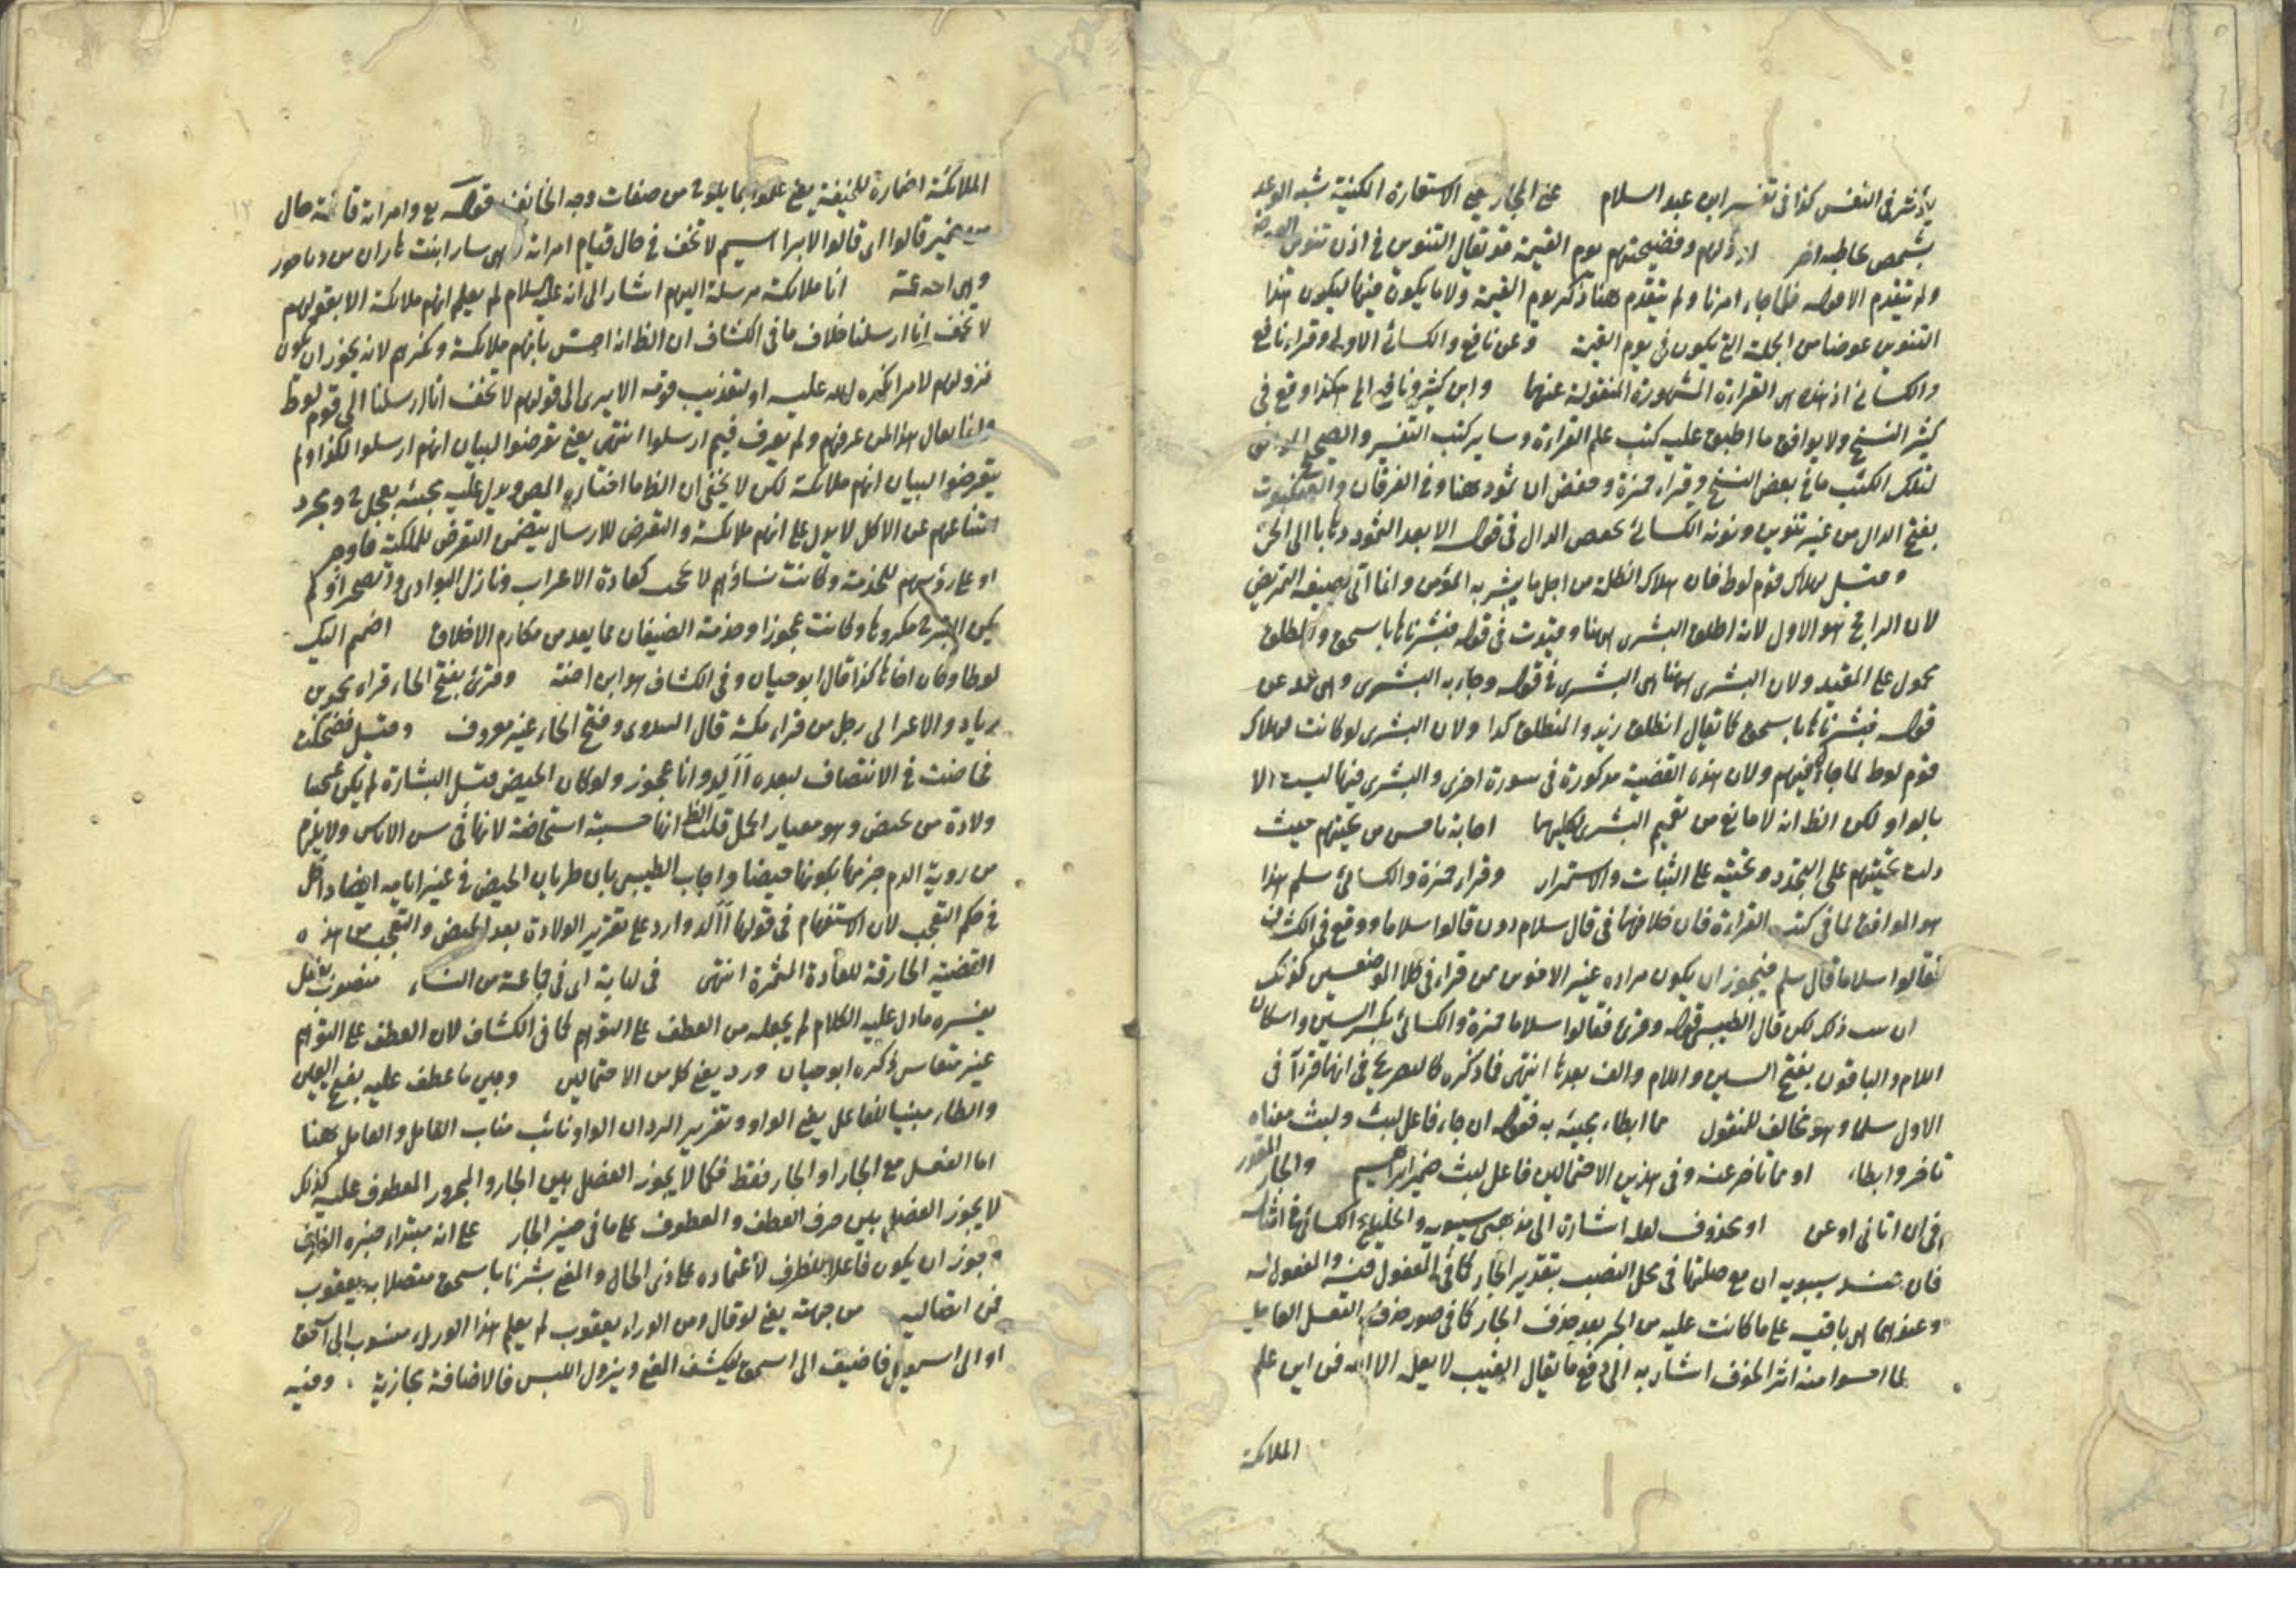 في النفس كذا في تفسير ابن عبد السلام على المجاز على الاستعارة المكنية شبه الوعد
بشخص اذ ذلهم وفضيحتهم يوم القيمة قد يقال التنوين في اذن تنوين العوض
ولم يتقدم الا قوله فلما جاء امرنا ولم يتقدم هنا ذكر يوم القيمة ولا ما يكون فيها ليكون هذا
التنوين عوضا من الجملة التي يكون في يوم القيمة وعن نافع والكسائي الاولى وقراء نافع
والكسائي اذ هذه هى القراءة المشهورة المنقولة عنهما وابن كثير ونافع الى هكذا وقع في
كثير النسخ ولا يوافق ما اطبق عليه كتب علم القراءة وساير كتب التفسير والصحيح
لتلك الكتب ما في بعض النسخ وقراء حمزة وحفص ان ثمود ههنا وفي الفرقان والعنكبوت
بفتح الدال من غير تنوين ونونه الكسائي بخفض الدال في قوله الا بعد الثمود ذهابا الى الحى
وقيل بهلاك قوم لوط فان هلاك الظلمة من اجل ما يبشر به المؤمن وانما اتى بصيغة التمريض
لان الراجح هو الاول لانه اطلق البشرى ههنا وقيدت في قوله فبشرناها باسحق والمطلق
محمول على المقيد ولان البشرى ههنا هى البشرى في قوله وجاءته البشرى وهى عن
قوله فبشرناها باسحق كما يقال انطلق زيد والمنطلق كذا ولان البشرى لو كانت لهلاك
قوم لوط لما ولان هذه القضية مذكورة في سورة اخرى والبشرى فيها ليست الا
بالولد لكن الظ انه لا مانع من تعميم البشرى لكليهما اجابة باحسن من تحيتهم حيث
دلت تحيتهم على التجدد وتحيته على الثبات والاستمرار وقراء حمزة والكسائي سلم هذا
هو الموافق لما في كتب القراءة فان خلافهما في قال سلام دون قالوا سلاما ووقع في الكشاف
فقالوا سلاما قال سلم فيجوز ان يكون مراده غير الاخوين ممن قراء في كلا الموضعين كذلك
ذلك لكن قال الطيبي قوله وقرئ فقالوا سلاما حمزة والكسائي بكسر السين واسكان
اللام والباقون بفتح السين واللام والف بعدها انتهى فما ذكره كالصريح في انهما قرءآ في
الاول سلما وهو مخالف للمنقول فما ابطاء مجيئه به فقوله ان جاء فاعل لبث ولبث معناه
تاخر وابطاء او مما تاخر عنه وفي هذين الاحتمالين فاعل لبث ضمير ابراهيم والجار المقدر
في ان اتاني او عن او محذوف لعله اشارة الى مذهبى سيبويه والخليل الكسائي في امثاله
فان عند سيبويه ان مع صلتها في محل النصب بتقدير الجار كما في المفعول فيه والمفعول له
وعندهما هى باقية على ما كانت عليه من الجر بعد حذف الجار كما في صور حذف الفعل العامل
لما احسوا منه اثر الخوف اشار به الى دفع ما يقال الغيب لا يعلمه الا الله فمن اين علم
الملائكة
الملائكة اضماره للخيفة يعني علموا بما يلوح من صفات وجه الخائف قوله تع وامراته قائمة حال
من ضمير قالوا اى قالوا لابراهيم لا تخف في حال قيام امراته وهى سارا بنت هاران من
وهى ابنة عمه انا ملائكة مرسلة اليهم اشار الى انه عليه السلام لم يعلم انهم ملائكة الا بقولهم
لا تخف انا ارسلنا خلاف ما في الكشاف ان الظ انه احس بانهم ملائكة ونكرهم لانه يجوز ان يكون
نزولهم لامر انكره الله عليه او لتعذيب قومه الا يرى الى قولهم لا تخف انا ارسلنا الى قوم لوط
وانما يقال هذا لمن عرفهم ولم يعرف فيم ارسلوا انتهى يعني تعرضوا لبيان انهم ارسلوا لكذا ولم
يتعرضوا لبيان انهم ملائكة لكن لا يخفى ان الظ ما اختاره المص ويدل عليه مجيئه بعجل ومجرد
امتناعهم عن الاكل لا يدل على انهم ملائكة والتعرض للارسال يتضمن التعرض للملكية فاوجز
او على رؤسهم للخدمة وكانت نساؤهم لا تحجب كعادة الاعراب ونازل البوادى والصحراء ولم
يكن التبرج مكروها وكانت عجوزا وخدمة الضيفان مما يعد من مكارم الاخلاق اضمم اليك
لوطا وكان اخاها كذا قال ابو حيان وفي الكشاف هو ابن اخته وقرئ بفتح الحاء قراء محمد بن
زياد والاعرابى رجل من قراء مكة قال المهدوى وفتح الحاء غير معروف وقيل فضحكت
فحاضت في الانتصاف لبعده ءالد وانا عجوز ولو كان الحيض قبل البشارة لم يكن عجبا
ولادة من تحيض وهو معيار الحمل قلت الظ انها حسبته استحاضة لانها في سن الاياس ولا يلزم
من روية الدم جزمها بكونها حيضا واجاب الطيبي بان طريان الحيض في غير ايامه ايضا داخل
في حكم التعجب لان الاستفهام في قولها ءالد وارد على تقرير الولادة بعد الحيض والتعجب من هذه
القضية الخارقة للعادة المثمرة انتهى في لباية اى في جماعة من النساء منصوب بفعل
يفسره ما دل عليه الكلام لم يجعله من العطف على التوهم كما في الكشاف لان العطف على التوهم
غير متقاس ذكره ابو حيان ورد يعني كلا من الاحتمالين وبين ما عطف عليه بفتح العين
والطاء مبنيا للفاعل يعني الواو وتقرير الرد ان الواو نائب مناب العامل والعامل ههنا
اما الفعل مع الجار او الجار فقط فكما لا يجوز الفصل بين الجار والمجرور المعطوف عليه كذلك
لا يجوز الفصل بين حرف العطف والمعطوف على ما في حيز الجار على انه مبتداء خبره الظرف
وجوز ان يكون فاعلا للظرف لاعتماده على ذى الحال والمعنى بشرنا باسحق متصلا به يعقوب
من جهته يعني لو قال ومن الوراء يعقوب لم يعلم هذا الوراء منسوب الى اسحق
او الى اسمعيل فاضيف الى اسحق لينكشف المعنى ويزول اللبس فالاضافة مجازية وفيه